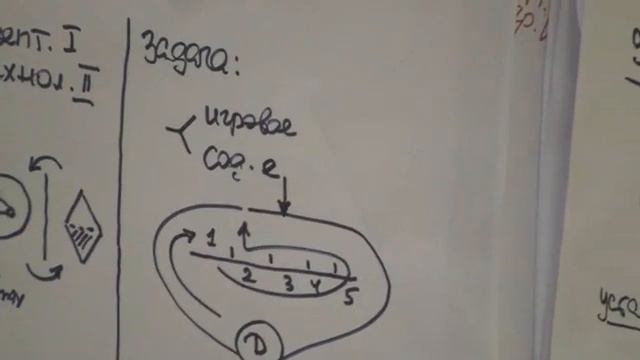 епт. I
хнол. II
Задача:
игровое
соц. е
1
2 3 4 5
D
уста